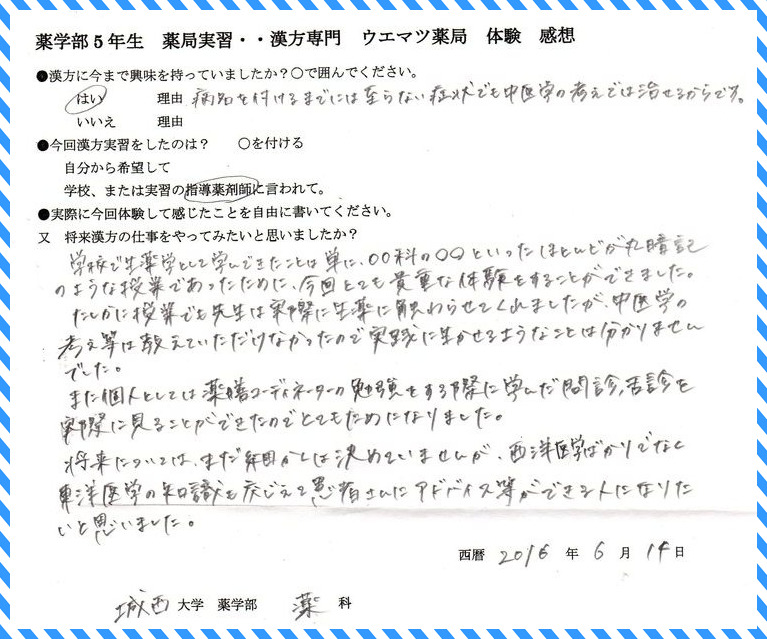 薬学部５年生　薬局実習・・漢方専門　ウエマツ薬局　体験　感想
●漢方に今まで興味を持っていましたか？○で囲んでください。
はい　理由　病名を付けるまでには至らない症状でも中医学の考えでは治せるからです。
いいえ　理由
●今回漢方実習をしたのは？　○を付ける
自分から希望して
学校、または実習の指導薬剤師に言われて。
●実際に今回体験して感じたことを自由に書いてください。
又　将来漢方の仕事をやってみたいと思いましたか？
学校で生薬学として学んできたことは単に、○○科の○○といったほとんどが丸暗記
のような授業であったために、今回とても貴重な体験をすることができました。
たしかに授業でも先生は実際に生薬に触わらせてくれましたが、中医学の
考え等は教えていただけなかったので実践に生かせるようなことは分かりません
でした。
また個人としては薬膳コーディネーターの勉強をする際に学んだ問診、舌診を
実際に見ることができたのでとてもためになりました。
将来については、まだ決めていませんが、西洋医学ばかりでなく
東洋医学の知識も交じえて患者さんにアドバイス等ができる人になりた
いと思いました。
西暦　2016　年　6　月　14　日
城西　大学　薬学部　薬　科